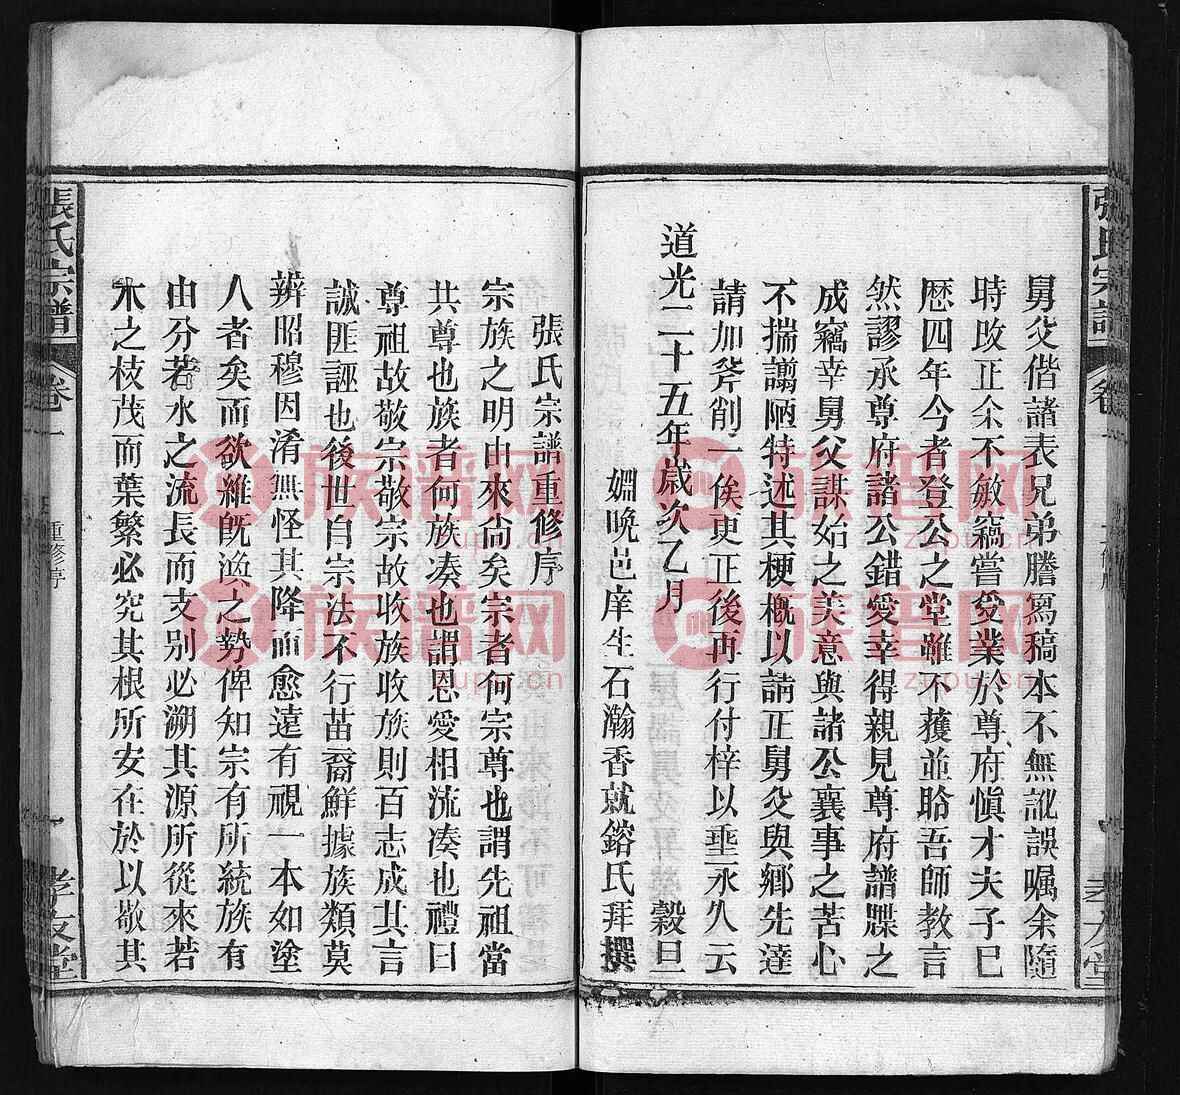 舅父偕諸表兄弟謄寫稿本不無訛誤嘱余隨
時攺正余不敏竊嘗受業於尊府愼才夫子已
歴四年今者登公之堂雖不獲並聆吾師教言
然謬承尊府諸公錯愛幸得親見尊府譜牒之
成竊幸舅父謀始之美意與諸公襄事之苦心
不揣譾陋特述其梗槪以請正舅父與鄉先達
請加斧削一俟更正後再行付梓以垂永久云
道光二十五年歲次乙月 穀旦
姻晚邑庠生石瀚香就鎔氏拜撰
張氏宗譜 卷一 重修序 一 孝友堂
張氏宗譜重修序
宗族之明由來尙矣宗者何宗尊也謂先祖當
共尊也族者何族凑也謂恩愛相流凑也禮曰
尊祖故敬宗敬宗故收族收族則百志成其言
誠匪誣也後世自宗法不行苗裔鮮據族類莫
辨昭穆因淆無怪其降而愈遠有視一本如塗
人者矣而欲維旣渙之勢俾知宗有所統族有
由分若水之流長而支别必溯其源所從來若
木之枝茂而葉繁必究其根所安在於以敬其
族譜网
zupu.cn